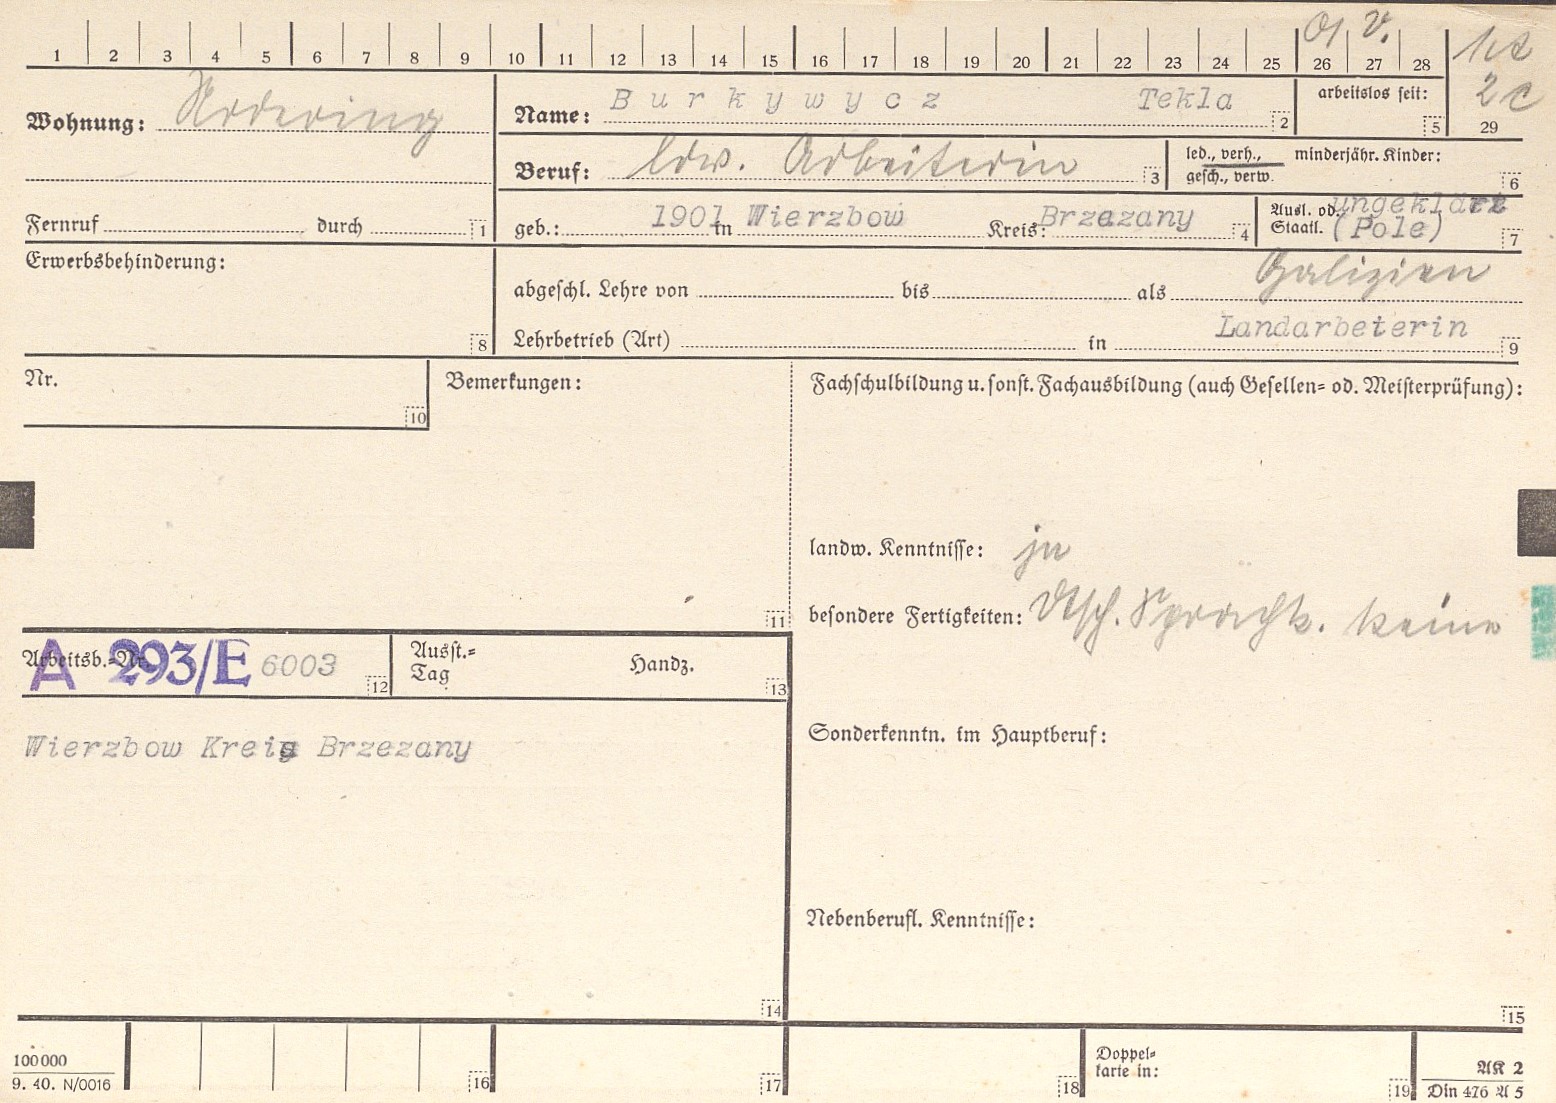 1 2 3 4 5 6 7 8 9 10 11 12 13 14 15 16 17 18 19 20 21 22 23 24 25 26 27 28
29
Wohnung:
Name: Burkywycz Tekla 2
arbeitslos seit: 5
Beruf: ldw. Arbeiterin 3
led., verh., minderjähr. Kinder:
gesch., verw. 6
Fernruf durch 1
geb.: 1901 in Wierzbow Kreis: Brzezany 4
Ausl. od. ungeklärt
Staatl. (Pole) 7
Erwerbsbehinderung: 8
Galizien
abgeschl. Lehre von bis als
Landarbeterin
Lehrbetrieb (Art) in 9
Nr. 10
Bemerkungen: 11
Fachschulbildung u. sonst. Fachausbildung (auch Gesellen- od. Meisterprüfung):
landw. Kenntnisse: ja
besondere Fertigkeiten: Dtsch. Sprachk. keine
Arbeitsb.-Nr. A 293/E 6003 12
Ausst.- Handz.
Tag 13
Wierzbow Kreis Brzezany
14
Sonderkenntn. im Hauptberuf:
Nebenberufl. Kenntnisse:
15
100000
9. 40. N/0016
16 17 18
Doppel-
karte in: 19
AK 2
Din 476 A 5